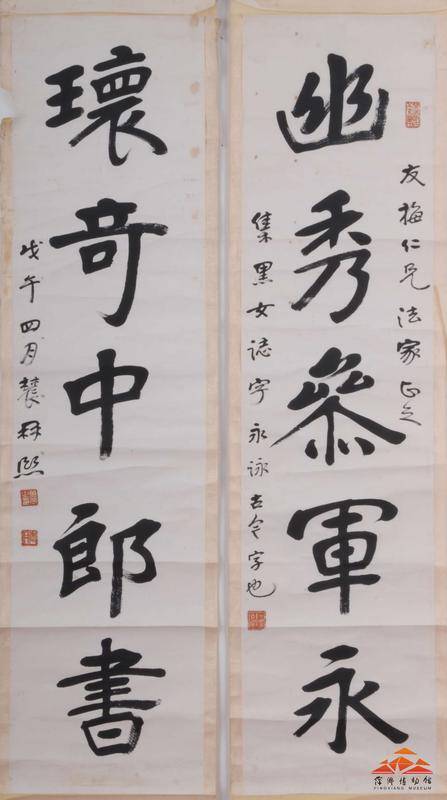 友梅仁兄法家正之
幽秀參軍永
集黑女誌字永詠古今字也
瓌奇中郎書
戊午四月林熙
萍鄉博物館
PINGXIANG MUSEUM